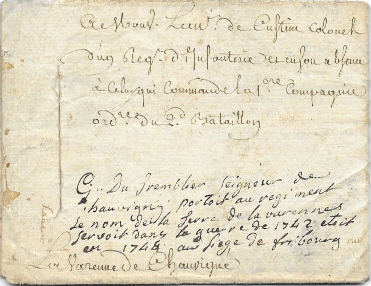 A Monsr Le Cte de Custine Colonel
d'un Regt d'Infanterie et en son absence
à Celuy qui Commande la 1ere Compagnie
ordre du 2d Bataillon
G. Du tremblier Seigneur de
chauvigny portoit au regiment
le nom de la Serre de la varennes
servoit dans la guerre de 1742 etoit
en 1744 au siege de fribourg
La Varenne de Chauvigné